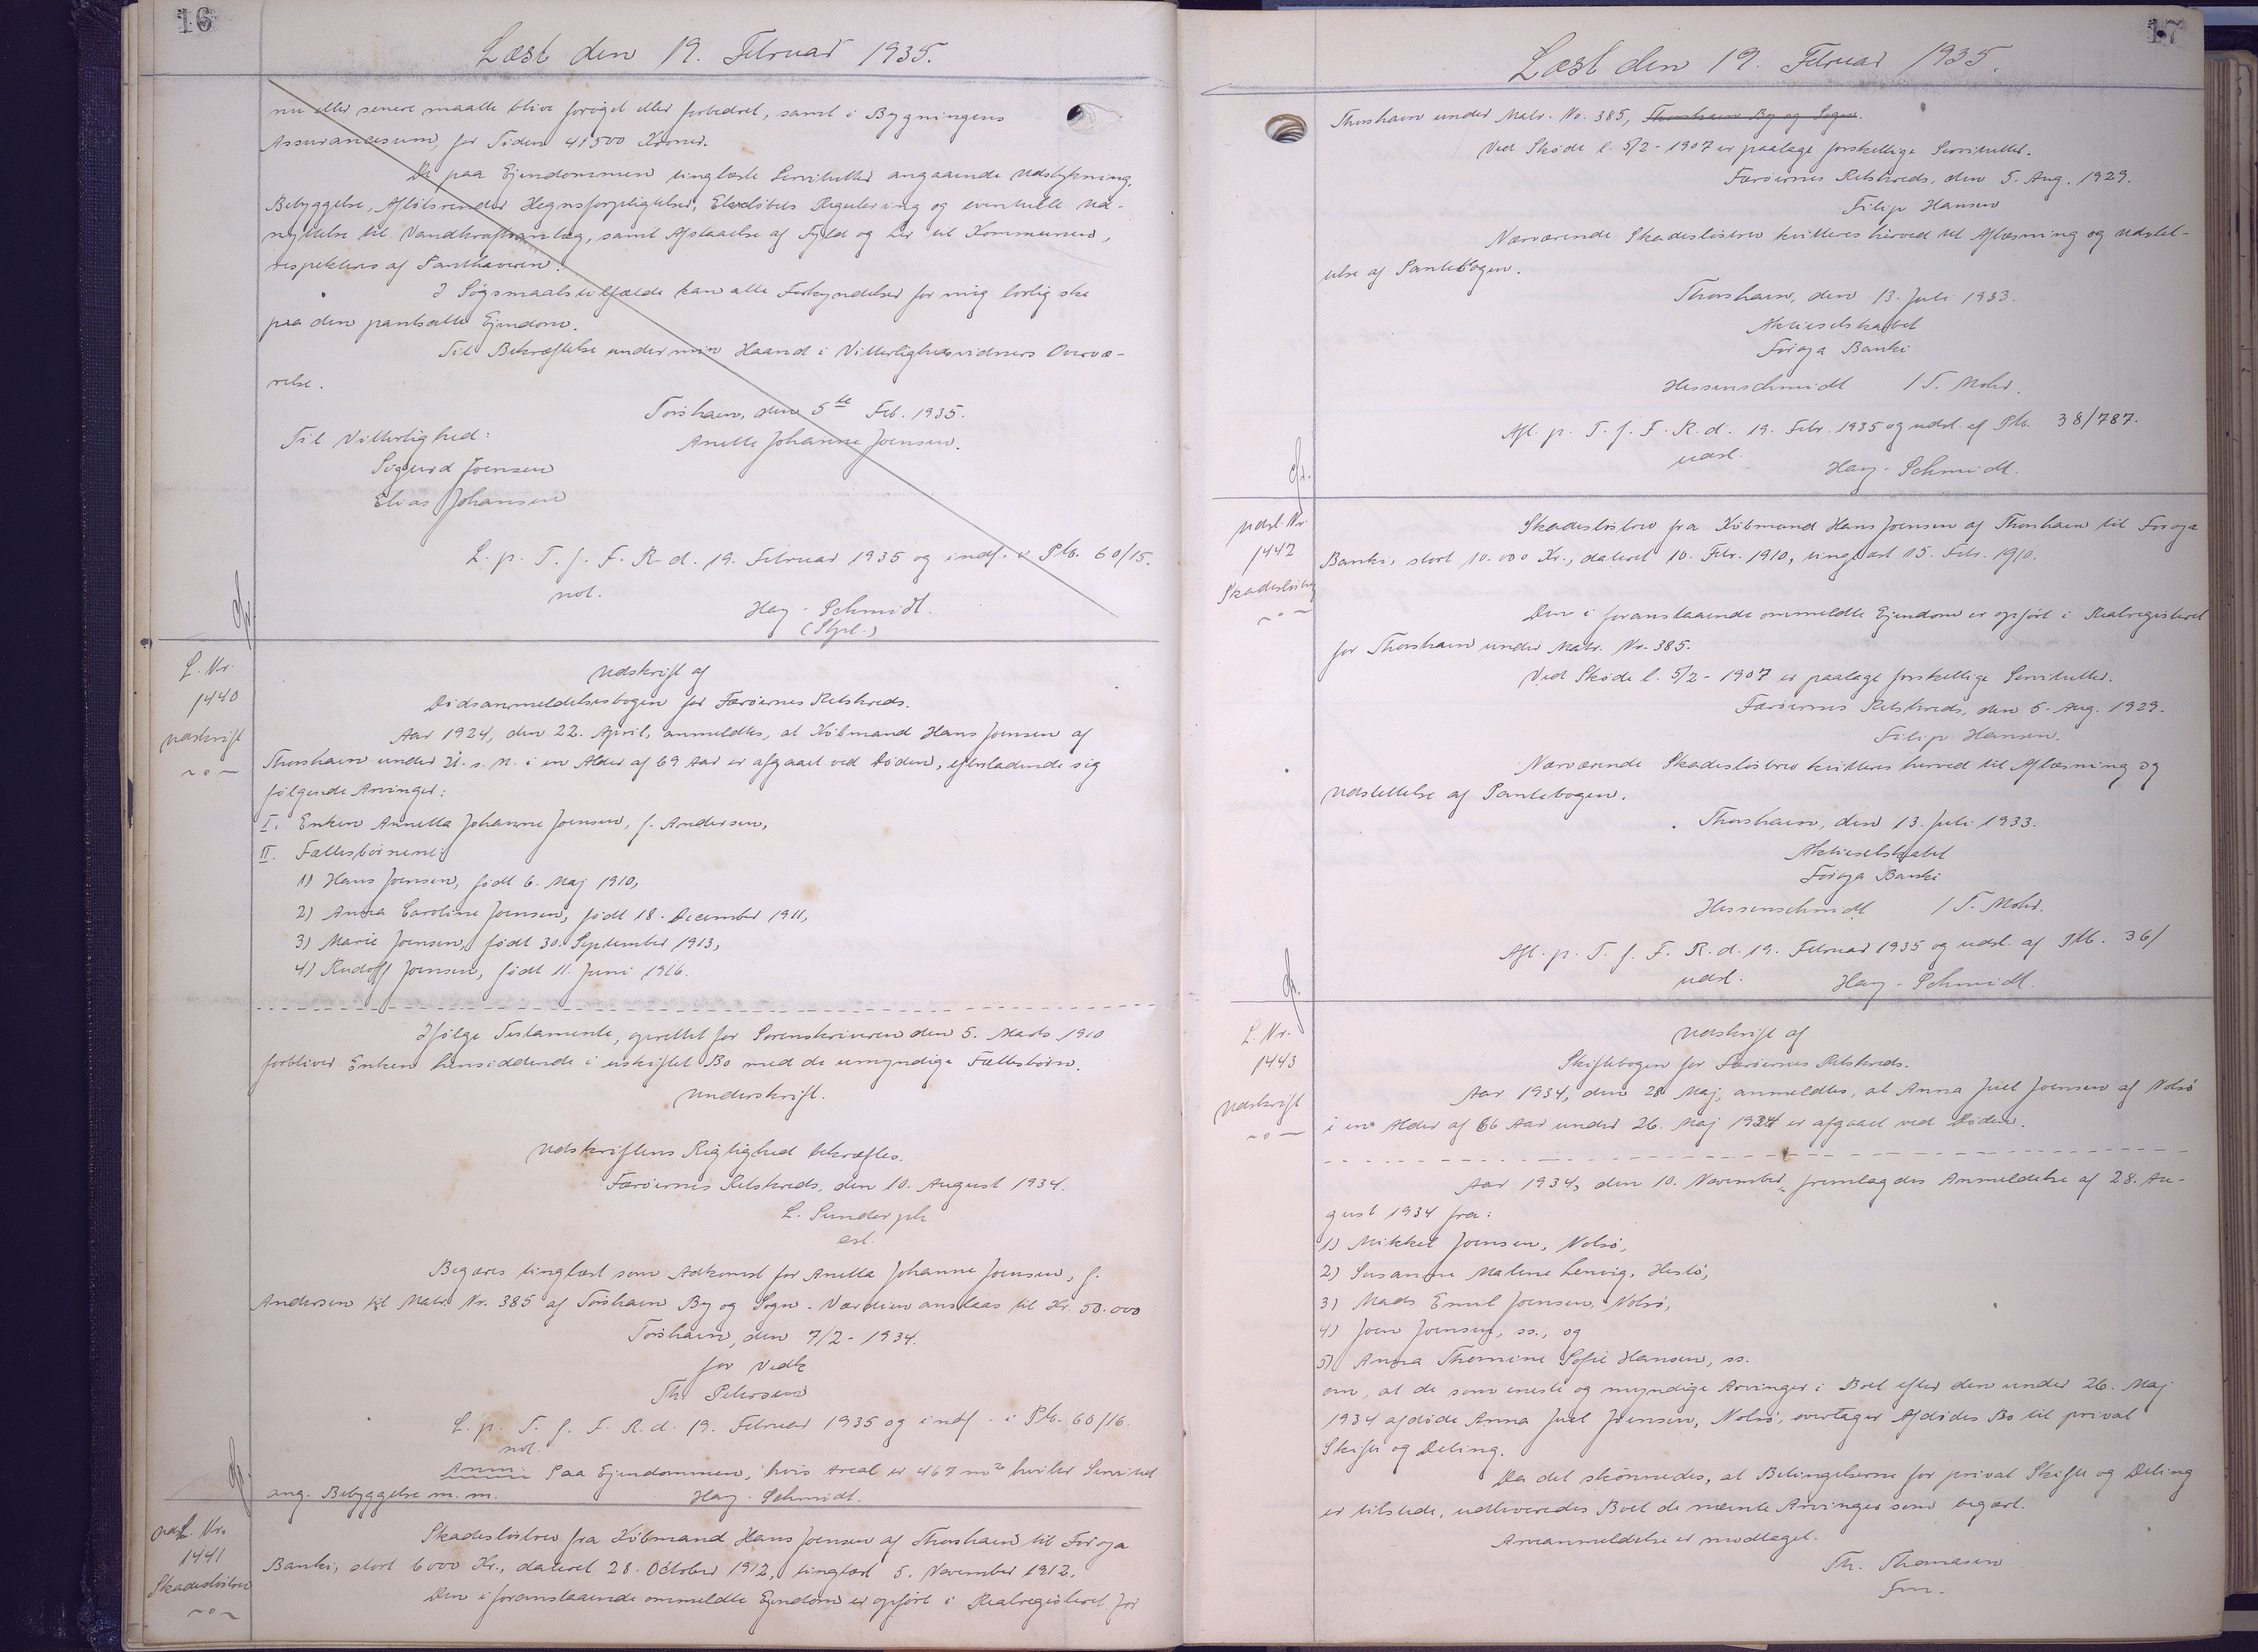 16
Læst den 19. Februar 1935.
nu eller senere maatte blive forøget eller forbedret, samt i Bygningens
Assurancesum, for Tiden 41500 Kroner.
De paa Ejendommen tinglæste Servitutter angaaende Udstykning,
Bebyggelse, Afløbsrender Hegnsforpligtelser, Elveløbets Regulering og eventuelle Ud-
nyttelse til Vandkraftanlæg, samt Afstaaelse af Fyld og Ler til Kommunen,
respekteres af Panthaveren.
I Søgsmaalstilfælde kan alle Forkyndelser for mig lovlig ske
paa den pantsatte Ejendom.
Til Bekræftelse under min Haand i Vitterlighedsvidners Overvæ-
relse.
Torshavn, den 5te Feb. 1935.
Til Vitterlighed:
Anette Johanne Joensen.
Sigurd Joensen
Elias Johansen
L. p. T. f. F. R. d. 19. Februar 1935 og indf. i Ptb. 60/15.
not.
Hay-Schmidt.
(Stpl.)
L. Nr.
1440
Udskrift
~o~
Udskrift af
Dødsanmeldelsesbogen for Færøernes Retskreds.
Aar 1924, den 22. April, anmeldtes, at Købmand Hans Joensen af
Thorshavn under 21. s. M. i en Alder af 69 Aar er afgaaet ved Døden, efterladende sig
følgende Arvinger:
I. Enken Annetta Johanne Joensen, f. Andersen,
II. Fællesbørnene:
1) Hans Joensen, født 6. Maj 1910,
2) Anna Caroline Joensen, født 18. December 1911,
3) Marie Joensen, født 30. September 1913,
4) Rudolf Joensen, født 11. Juni 1916.
Ifølge Testamente, oprettet for Sorenskriveren den 5. Marts 1910
forbliver Enken hensiddende i uskiftet Bo med de umyndige Fællesbørn.
Underskrift.
Udskriftens Rigtighed bekræftes.
Færøernes Retskreds, den 10. August 1934.
L. Sunderph
cst.
Begæres tinglæst som Adkomst for Anetta Johanne Joensen, f.
Andersen til Matr. Nr. 385 af Torshavn By og Sogn. Værdien anslaas til Kr. 50.000
Torshavn, den 7/2-1934.
for Vedk
Th. Petersen
L. p. T. f. F. R. d. 19. Februar 1935 og indf. i Ptb. 60/16.
not.
Anm: Paa Ejendommen, hvis Areal er 467 m² hviler Servitut
ang. Bebyggelse m. m.
Hay-Schmidt.
Udsl. Nr.
1441
Skadesløsbrev
~o~
Skadesløsbrev fra Købmand Hans Joensen af Thorshavn til Føroya
Banki, stort 6000 Kr., dateret 28. October 1912, tinglæst 5. November 1912.
Den i foranstaaende ommeldte Ejendom er opført i Realregistret for
17
Læst den 19. Februar 1935.
Thorshavn under Matr. No. 385, Thorshavn By og Sogn.
Ved Skøde l. 5/2-1907 er paalagt forskellige Servitutter.
Færøernes Retskreds, den 5. Aug. 1929.
Filip Hansen
Nærværende Skadesløsbrev kvitteres herved til Aflæsning og Udslet-
telse af Pantebogen.
Thorshavn, den 13. Juli 1933.
Aktieselskabet
Føroya Banki
Hessenschmidt / T. Mohr.
Afl. p. T. f. F. R. d. 19. Febr. 1935 og udsl. af Ptb. 38/787.
udsl.
Hay-Schmidt.
Udsl. Nr.
1442
Skadesløsbrev
~o~
Skadesløsbrev fra Købmand Hans Joensen af Thorshavn til Føroya
Banki, stort 10.000 Kr., dateret 10. Febr. 1910, tinglæst 15. Febr. 1910.
Den i foranstaaende ommeldte Ejendom er opført i Realregisteret
for Thorshavn under Matr. Nr. 385.
Ved Skøde l. 5/2-1907 er paalagt forskellige Servitutter.
Færøernes Retskreds, den 5. Aug. 1929.
Filip Hansen.
Nærværende Skadesløsbrev kvitteres herved til Aflæsning og
Udslettelse af Pantebogen.
Thorshavn, den 13. Juli 1933.
Aktieselskabet
Føroya Banki
Hessenschmidt / T. Mohr.
Afl. p. T. f. F. R. d. 19. Februar 1935 og udsl. af Ptb. 36/
udsl.
Hay-Schmidt.
L. Nr.
1443
Udskrift
~o~
Udskrift af
Skiftebogen for Færøernes Retskreds.
Aar 1934, den 28 Maj, anmeldtes, at Anna Juel Joensen af Nolsø
i en Alder af 66 Aar under 26. Maj 1934 er afgaaet ved Døden.
Aar 1934, den 10. November, fremlagdes Anmeldelse af 28. Au-
gust 1934 fra:
1) Mikkel Joensen, Nolsø,
2) Susanne Malene Lervig, Hestø,
3) Mads Emil Joensen, Nolsø,
4) Joen Joensen, ss., og
5) Anna Thomine Sofie Hansen, ss.
om, at de som eneste og myndige Arvinger i Boet efter den under 26. Maj
1934 afdøde Anna Juel Joensen, Nolsø, overtager Afdødes Bo til privat
Skifte og Deling.
Da det skønnedes, at Betingelserne for privat Skifte og Deling
er tilstede, udleveredes Boet de nævnte Arvinger som begært.
Arveanmeldelse er modtaget.
Th. Thomasen
Fm.